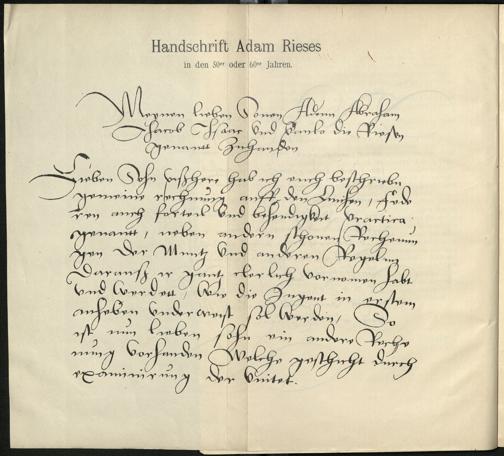 Handschrift Adam Rieses
in den 50er oder 60er Jahren.
Meynen lieben Sonen Adam Abraham
Jacob Isaac Vnd Paulo die Riesen
genant Zuhanden
Lieben Sohn hab ich euch beschrieben
gemeine rechnung auff den Linihen, Fede
ren auch forteil Vnd behendigkeit Practica
genannt, neben andern schonen Rechenun
gen der Muntz Vnd anderen Regeln
Darauß ir gantz clerlich vornomen habt
Vnd werdet, Wie die Jugent in erstem
anheben underweist sol werden, So
ist nun lieben sohn ein andere Reche
nung vorhanden Welche geschicht durch
examinirung der Vnitet.